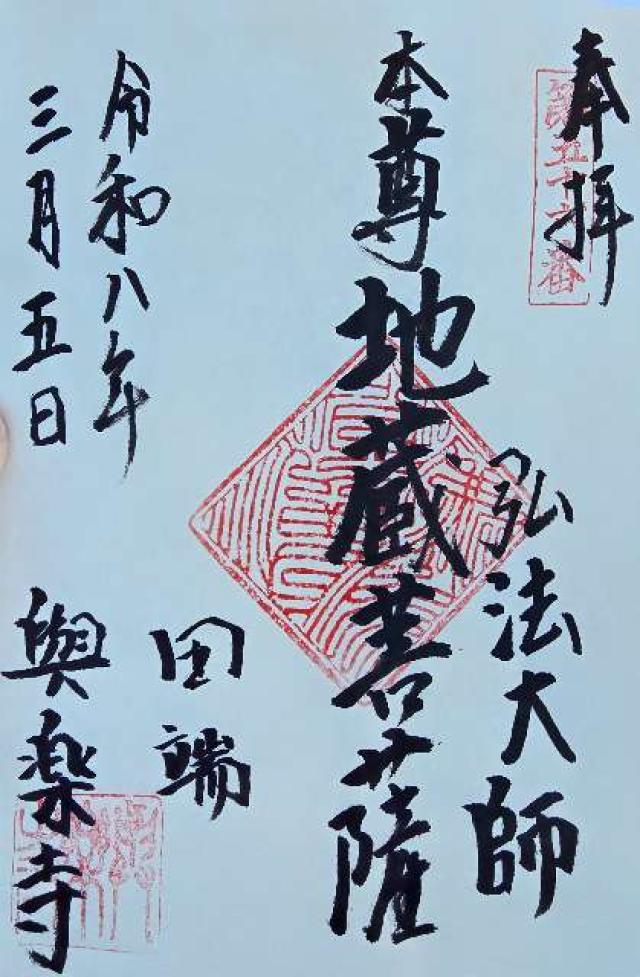 奉拝
第五十六番
本尊地蔵菩薩
弘法大師
令和八年
三月五日
田端
與楽寺